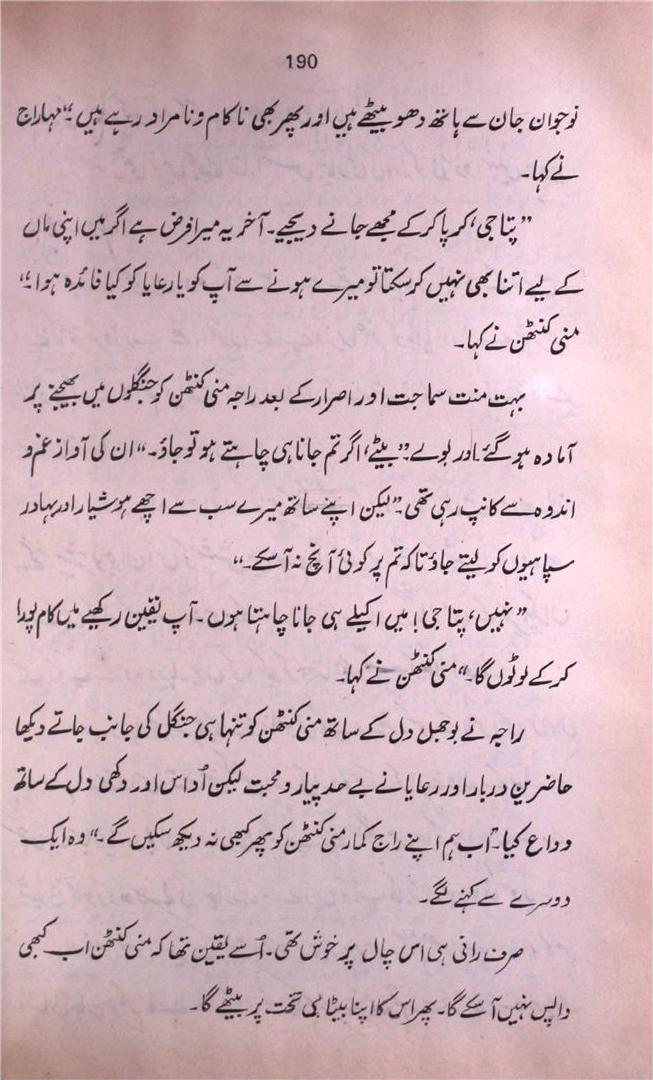 190
نوجوان جان سے ہاتھ دھو بیٹھے ہیں اور پھر بھی ناکام و نامراد رہے ہیں۔“ مہاراج
نے کہا۔
”پتا جی، کرپا کر کے مجھے جانے دیجیے۔ آخر یہ میرا فرض ہے اگر میں اپنی ماں
کے لیے اتنا بھی نہیں کر سکتا تو میرے ہونے سے آپ کو یا رعایا کو کیا فائدہ ہوا۔“
منی کنٹھن نے کہا۔
بہت منت سماجت اور اصرار کے بعد راجہ منی کنٹھن کو جنگلوں میں بھیجنے پر
آمادہ ہو گئے اور بولے۔ ”بیٹے، اگر تم جانا ہی چاہتے ہو تو جاؤ۔“ ان کی آواز غم و
اندوہ سے کانپ رہی تھی۔ ”لیکن اپنے ساتھ میرے سب سے اچھے ہوشیار اور بہادر
سپاہیوں کو لیتے جاؤ تاکہ تم پر کوئی آنچ نہ آ سکے۔“
”نہیں، پتا جی! میں اکیلے ہی جانا چاہتا ہوں۔ آپ یقین رکھیے میں کام پورا
کر کے لوٹوں گا۔“ منی کنٹھن نے کہا۔
راجہ نے بوجھل دل کے ساتھ منی کنٹھن کو تنہا ہی جنگل کی جانب جاتے دیکھا
حاضرینِ دربار اور رعایا نے بے حد پیار و محبت لیکن اُداس اور دکھی دل کے ساتھ
وداع کیا۔ ”اب ہم اپنے راج کمار منی کنٹھن کو پھر کبھی نہ دیکھ سکیں گے۔“ وہ ایک
دوسرے سے کہنے لگے۔
صرف رانی ہی اس چال پر خوش تھی۔ اُسے یقین تھا کہ منی کنٹھن اب کبھی
واپس نہیں آ سکے گا۔ پھر اس کا اپنا بیٹا ہی تخت پر بیٹھے گا۔